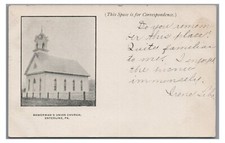 (This Space is for Correspondence.)
Do you remem-
ber this place?
Quite familiar
to me. I enjoyed
the
immensely.
REFORMED & UNION CHURCH,
PA.